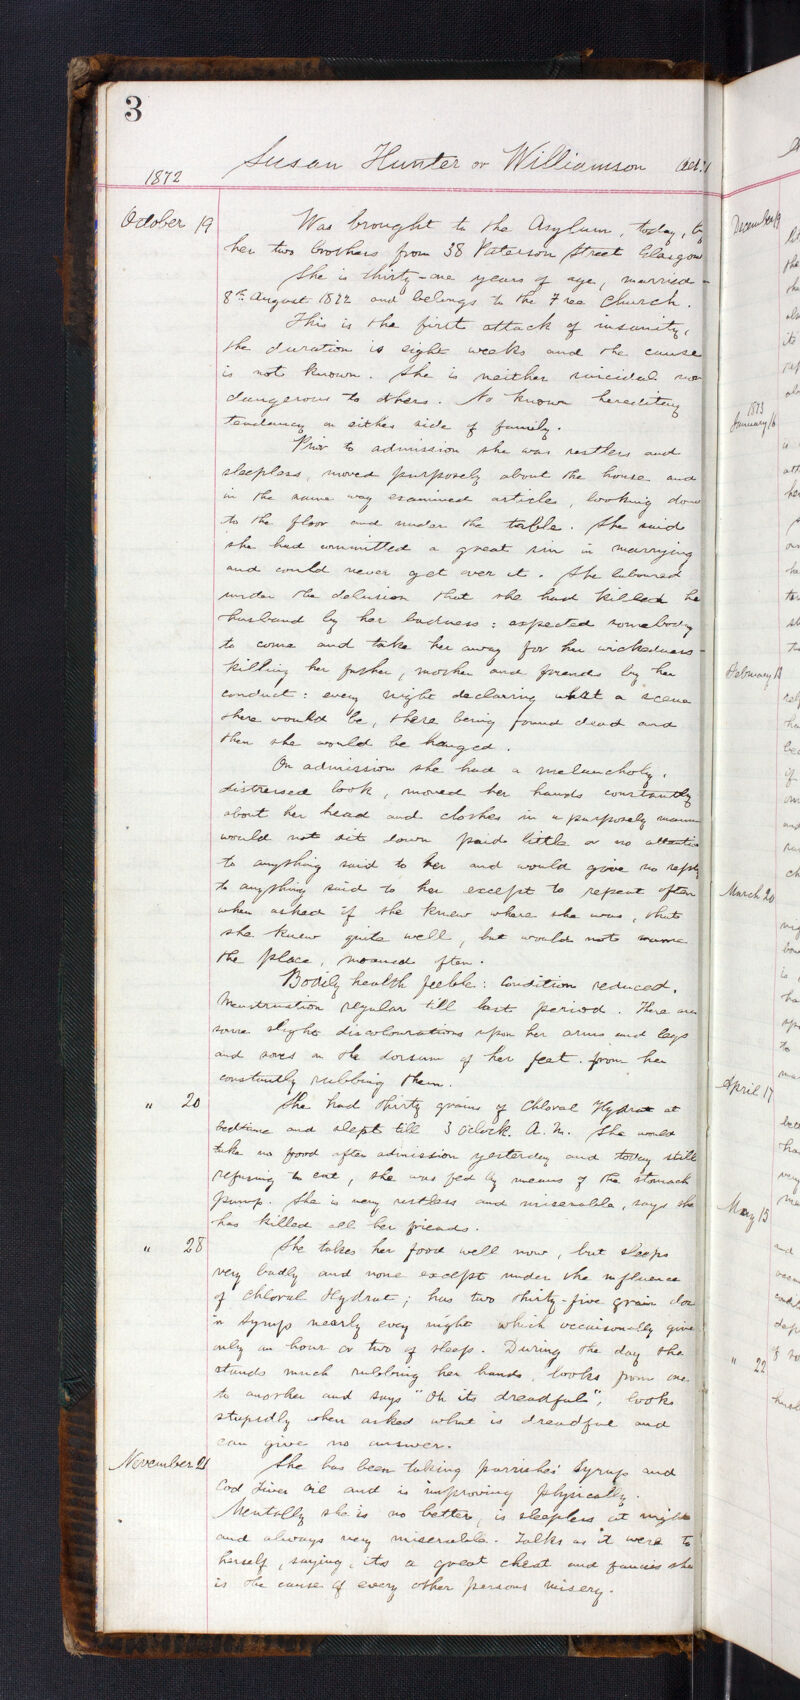 3
1872 Susan Hunter or Williamson
October 19 Was brought to the Asylum, today, by
her two brothers from 38 Paterson Street Glasgow
She is thirty-one years of age, married
8th August 1872 and belongs to the Free Church.
This is the first attack of insanity,
the duration is eight weeks and the cause
is not known. She is neither suicidal nor
dangerous to others. No known hereditary
tendency on either side of family.
Prior to admission she was restless and
sleepless, moved purposely about the house and
in the same way examined articles, looking down
to the floor and under the table. She said
she had committed a great sin in marrying
and could never get over it. She laboured
under the delusion that she had killed he
husband by her badness: expected somebody
to come and take her away for her wickedness -
killing her father, mother and friends by her
conduct: every night declaring what a scene
there would be, there being found dead and
then she would be hanged.
On admission she had a melancholy,
distressed look, moved her hands constantly
about her head and clothes in a purposely manner
would not sit down paid little or no attention
to anything said to her and would give no reply
to anything said to her except to repeat often
when asked if she knew where she was, that
she knew quite well, but would not name
the place, moaned often.
Bodily health feeble: Condition reduced.
Menstruation regular till last period. There are
some slight discolourations upon her arms and legs
and sores on the dorsum of her feet from her
constantly rubbing them.
" 20 She had thirty grains of Chloral Hydrat at
bedtime and slept till 3 Oclock. A.M. She would
take no food after admission yesterday and today still
refusing to eat, she was fed by means of the stomach
pump. She is very restless and miserable, says she
has killed all her friends.
" 28 She takes her food well now, but sleeps
very badly and none except under the influence
of Chloral Hydrat; has two thirty-five grain dos
in Syrup nearly every night which occaisonally give
only an hour or two of sleep. During the day she
stands much rubbing her hands, looks from one
to another and says "Oh its dreadful", looks
stupidly when asked what is dreadful and
can give no answer.
November 21 She has been taking parrishes Syrup and
Cod Liver Oil and is improving physically.
Mentally she is no better, is sleepless at night
and always very miserable. Talks as it were to
herself, saying, its a great cheat and fancies she
is the cause of every other persons misery.
December 19
1873
January 16
February 13
March 20
April 17
May 15
" 22